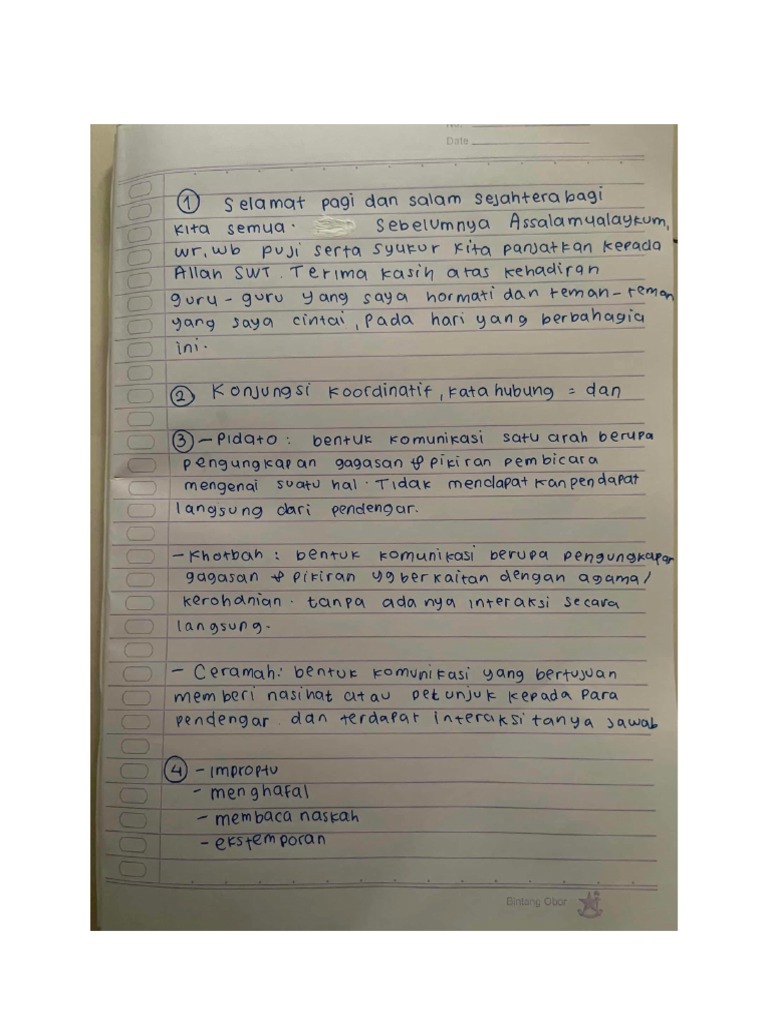 No.
Date
① Selamat pagi dan salam sejahtera bagi
kita semua. Sebelumnya Assalamualaykum,
wr, wb puji serta syukur kita panjatkan kepada
Allah SWT. Terima kasih atas kehadiran
guru-guru yang saya hormati dan teman-teman
yang saya cintai, pada hari yang berbahagia
ini.
② Konjungsi koordinatif, kata hubung = dan
③ - Pidato : bentuk komunikasi satu arah berupa
pengungkapan gagasan & pikiran pembicara
mengenai suatu hal. Tidak mendapatkan pendapat
langsung dari pendengar.
- Khotbah : bentuk komunikasi berupa pengungkapan
gagasan & pikiran yg berkaitan dengan agama/
kerohanian. tanpa adanya interaksi secara
langsung.
- Ceramah : bentuk komunikasi yang bertujuan
memberi nasihat atau petunjuk kepada para
pendengar. dan terdapat interaksi tanya jawab
④ - improptu
- menghafal
- membaca naskah
- ekstemporan
Bintang Obor